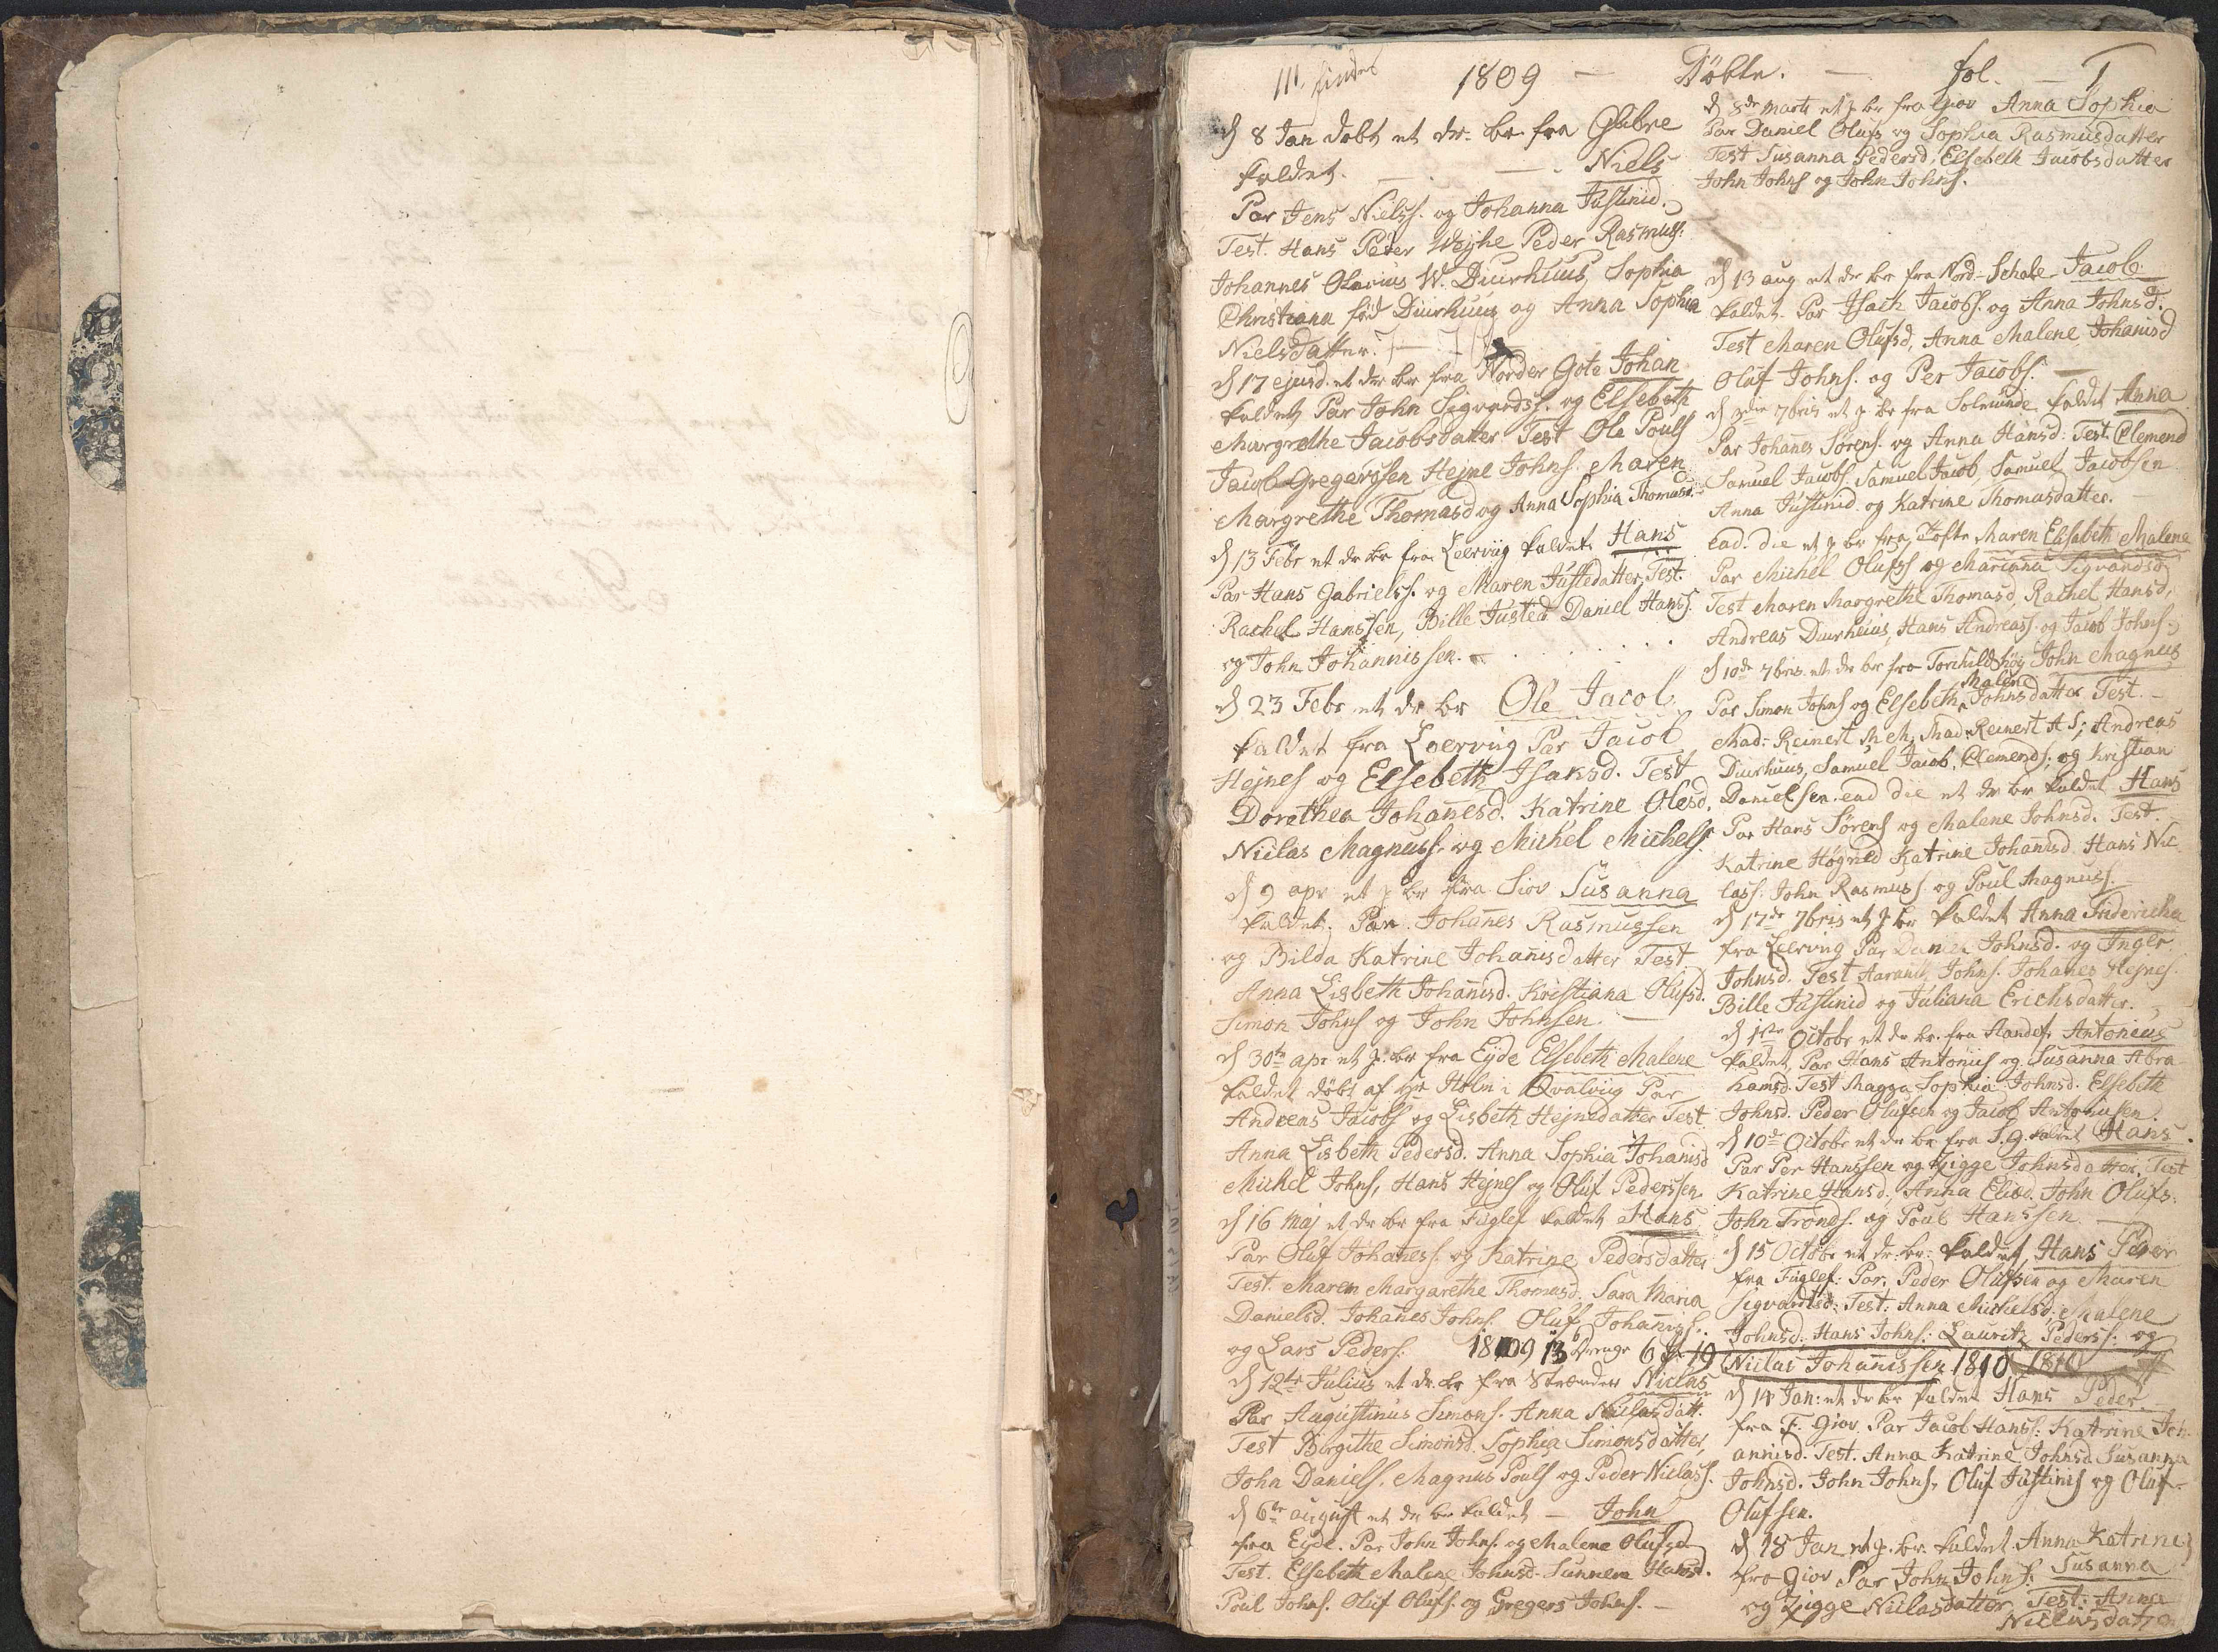 1809 — Döbte. — fol. — 1
d 8 Jan döbt et dr. br. fra Glibre
kaldet. — . — . Niels
Par Jens Nielss. og Johanna Justinid.
Test. Hans Peder Wejhe Peder Rasmuss.
Johannes W. Diurhuus, Sophia
Christiana föd Diurhuus og Anna Sophia
Nielsdatter.
d 17 ejusd. et dr br fra Norder Göte Johan
kaldet Par John Sigvardss. og Elsebeth
Margrethe Jacobsdatter Test Ole Pouls
Jacob Gregerssen Hejne Johns. Maren
Margrethe Thomasd og Anna Sophia Thomasd.
d 13 Febr et dr br fra Leervig kaldet Hans
Par Hans Gabrielss. og Maren Justedatter, Test.
Rachel Hanssen, Bille Justed Daniel Hanss.
og John Johannissen.
d 23 Febr et dr br Ole Jacob
kaldet fra Leervig Par Jacob
Hejnes og Elsebeth Isaksd. Test
Dorethea Johanesd. Katrine Olesd.
Niclas Magnuss. og Michel Michels.
d 9 apr et p br fra Siov Susanna
kaldet. Par. Johanes Rasmussen
og Bilda Katrine Johanisdatter Test
Anna Lisbeth Johanisd. Kristiana Olufsd.
Simon Johns og John Johnsen —
d 30te apr et p. br fra Eyde Elsebeth Malene
kaldet döbt af Hr Holm i Qvalviig Par
Andreas Jacobs og Lisbeth Hejnedatter Test
Anna Lisbeth Pedersd. Anna Sophia Johanisd
Michel Johns, Hans Hejnes og Oluf Pederssen
d 16 Maj et dr br fra Fuglef kaldet Hans
Par Oluf Johaness. og Katrine Pedersdatter
Test. Maren Margarethe Thomasd. Sara Maria
Danielsd. Johanes Johns. Oluf Johaniss.
og Lars Peders. 1809 13 Drenge 6 p 19
d 12te Julius et dr br fra Strænder Niclas
Par Augustinus Simons. Anna Niclasdatt.
Test Birgithe Simonsd. Sophia Simonsdatter
John Daniels. Magnus Pouls og Peder Niclass.
d 6te august et dr br kaldet — John
fra Eyde. Par John Johns. og Malene Olufsd
Test. Elsebeth Malene Johnsd. Sunneva Hansd.
Poul Johns. Oluf Olufs. og Gregers Johns. —
d 8de Marts et p br fra Giov Anna Sophia
Par Daniel Olufs og Sophia Rasmusdatter
Test Susanna Pedersd, Elsebeth Jacobsdatter
John Johns og John Johns.
d 13 aug et dr br fra Nord-Schale Jacob
kaldet. Par Isach Jacobs. og Anna Johnsd.
Test Maren Olufsd, Anna Malene Johanisd
Oluf Johns. og Per Jacobs. —
d 3die 7bris et p br fra Solmunde kaldet Anna
Par Johanes Sörens. og Anna Hansd: Test. Clemend
Samuel Jacobs. Samuel Jacob, Samuel Jacobsen
Anna Justinid. og Katrine Thomasdatter. —
ead. die et p br fra Tofte Maren Elsebeth Malene
Par Michel Olufss og Mariana Sigvardsd
Test Maren Margrethe Thomasd, Rachel Hansd,
Andreas Diurhuus, Hans Andreass. og Jacob Johns.
d 10de 7bris et dr br fra Torkildshöy John Magnus
Malene
Par Simon Johns og Elsebeth Johnsdatter Test. —
Mad: Reinert Mad Reinert Andreas
Diurhuus, Samuel Jacob. Clemends. og Kristian
Danielsen. ead die et dr br kaldet Hans
Par Hans Sörens og Malene Johnsd. Test.
Katrine Högned Katrine Johanisd. Hans Nic-
lass. John Rasmuss og Poul Magnuss.
d 17de 7bris et p br kaldet Anna Fridericha
fra Leervig Par Daniel Johnsd. og Inger
Johnsd. Test Johns. Johanes Hejnes.
Bille Justinid og Juliana Erichsdatter.
d 1ste Octobr et dr br fra Andef. Antonius
kaldet, Par Hans Antonius og Susanna Abra-
hamsd. Test Magga Sophia Johnsd. Elsebeth
Johnsd. Peder Olufsen og Jacob Antoniusen.
d 10de Octobr et dr br fra S.g. kaldet Hans
Par Per Hanssen og Zigge Johnsdatter, Test
Katrine Hansd. Anna Eliæd. John Olufs.
John Tronds. og Poul Hanssen.
d 15 Octobr et dr. br: kaldet Hans Peder
fra Fuglef: Par. Peder Olufsen og Maren
Sigvardsd. Test: Anna Michelsd, Malene
Johnsd. Hans Johns. Lauritz Pederss. og
Niclas Johanissen 1810 1810
d 14 Jan: et dr br kaldet Hans Peder.
fra F. Giov. Par Jacob Hanss. Katrine Joh-
annisd. Test. Anna Katrine Johnsd Susanna
Johnsd. John Johns, Oluf Justinis og Oluf
Olufsen.
d 18 Jan et p. br. kaldet Anna Katrine
fra Giov Par John Johns. Susanna
og Zigge Niclasdatter Test: Anna
Niclasdatter